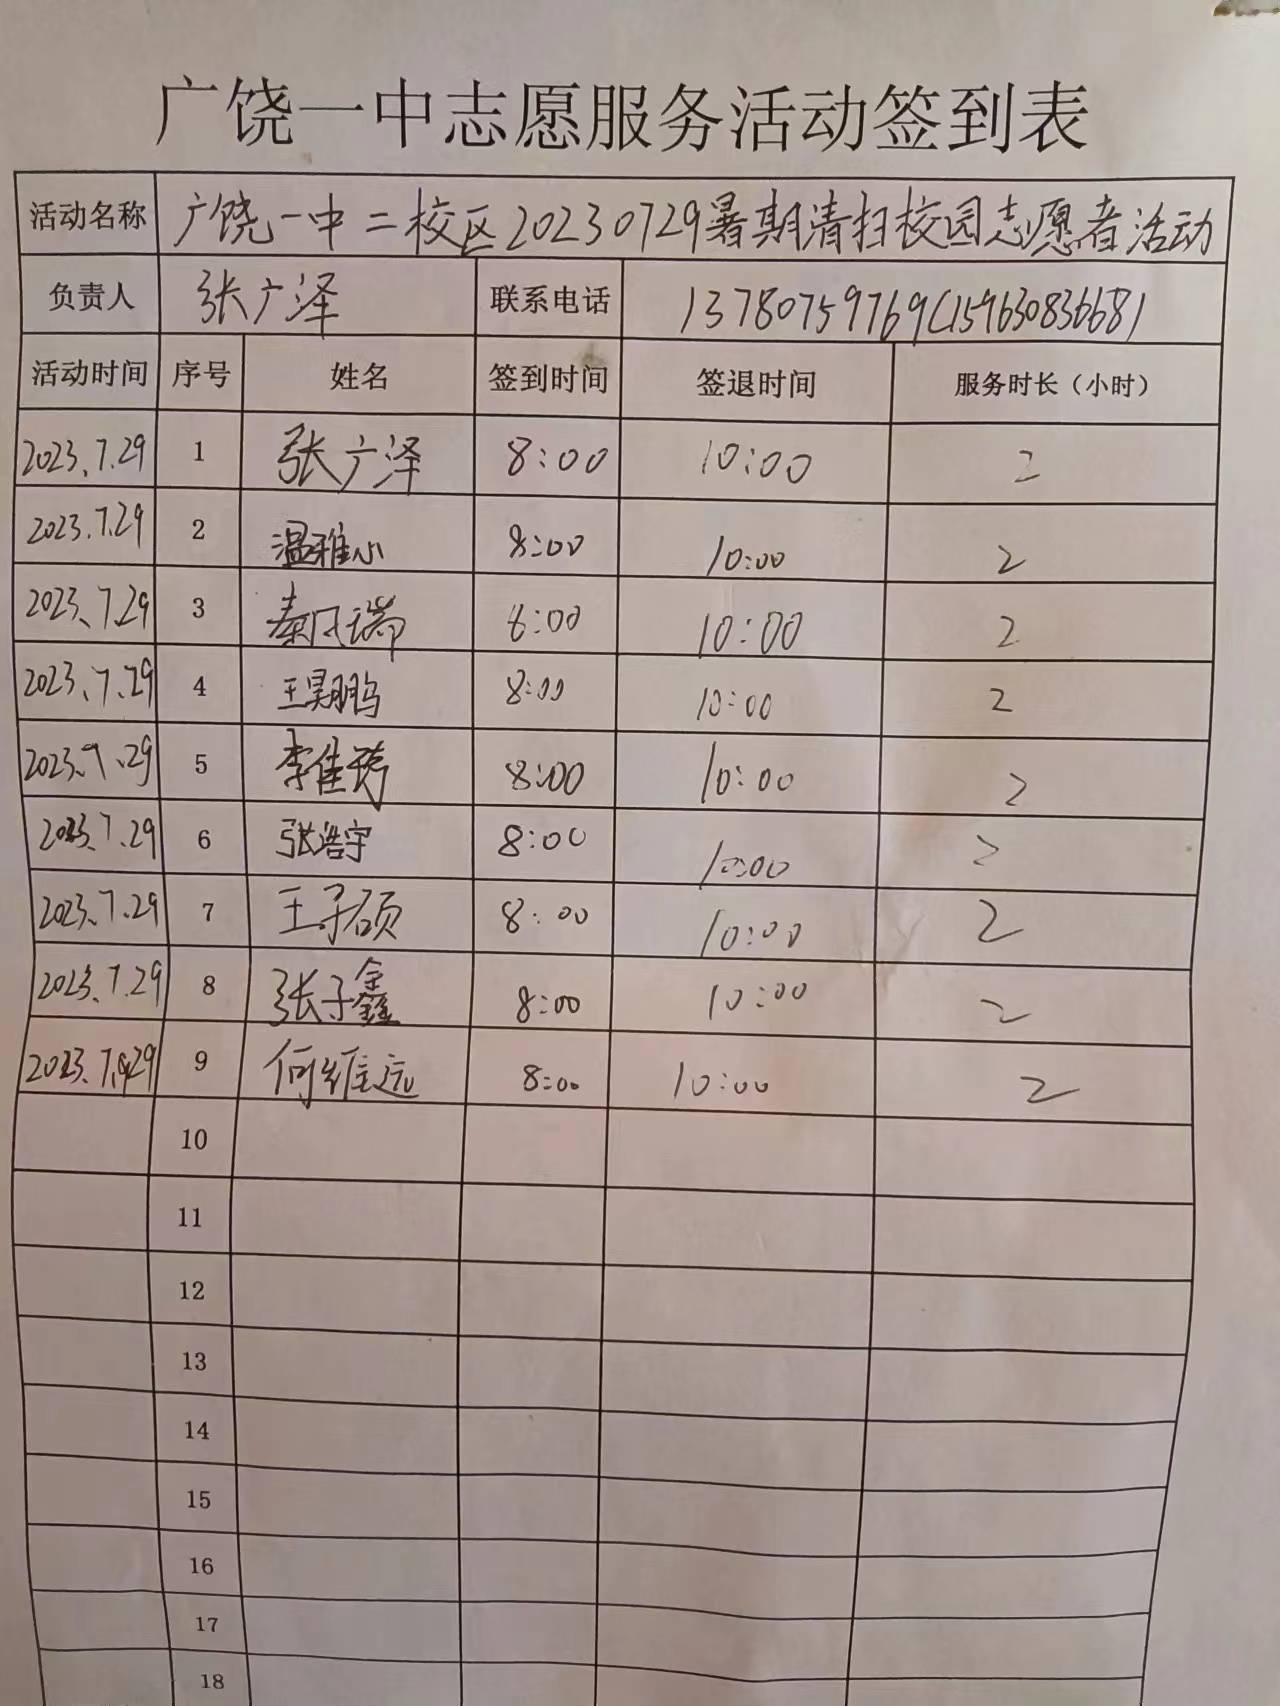 广饶一中志愿服务活动签到表
活动名称 广饶一中二校区20230729暑期清扫校园志愿者活动
负责人 张广泽 联系电话 13780759769(15963083668)
活动时间 序号 姓名 签到时间 签退时间 服务时长（小时）
2023.7.29 1 张广泽 8:00 10:00 2
2023.7.29 2 温雅小 8:00 10:00 2
2023.7.29 3 秦风瑞 8:00 10:00 2
2023.7.29 4 王昊鹏 8:00 10:00 2
2023.7.29 5 李佳 8:00 10:00 2
2023.7.29 6 张浩宇 8:00 10:00 2
2023.7.29 7 王子硕 8:00 10:00 2
2023.7.29 8 张子鑫 8:00 10:00 2
2023.7.29 9 何维远 8:00 10:00 2
10
11
12
13
14
15
16
17
18